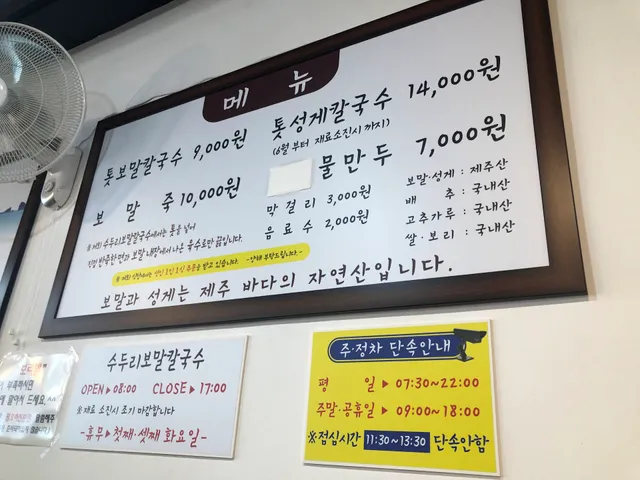 메 뉴
톳보말칼국수 9,000원
보 말 죽 10,000원
톳성게칼국수 14,000원
(6월 부터 재료소진시 까지)
물만두 7,000원
막 걸 리 3,000원
음 료 수 2,000원
보말·성게 : 제주산
배 추 : 국내산
고추가루 : 국내산
쌀·보리 : 국내산
※ 저희 수두리보말칼국수에서는 톳을 넣어
직접 반죽한면과 보말 내장에서 나온 육수로만 끓입니다.
※ 저희 식당에서는 성인 1인 1식 주문을 받고 있습니다. -양해 부탁드립니다-
보말과 성게는 제주 바다의 자연산입니다.
수두리보말칼국수
OPEN ▶ 08:00 CLOSE ▶ 17:00
※ 재료 소진시 조기 마감합니다
-휴무 ▶ 첫째·셋째 화요일-
주·정차 단속안내
평 일 ▶ 07:30~22:00
주말·공휴일 ▶ 09:00~18:00
※점심시간 11:30~13:30 단속안함